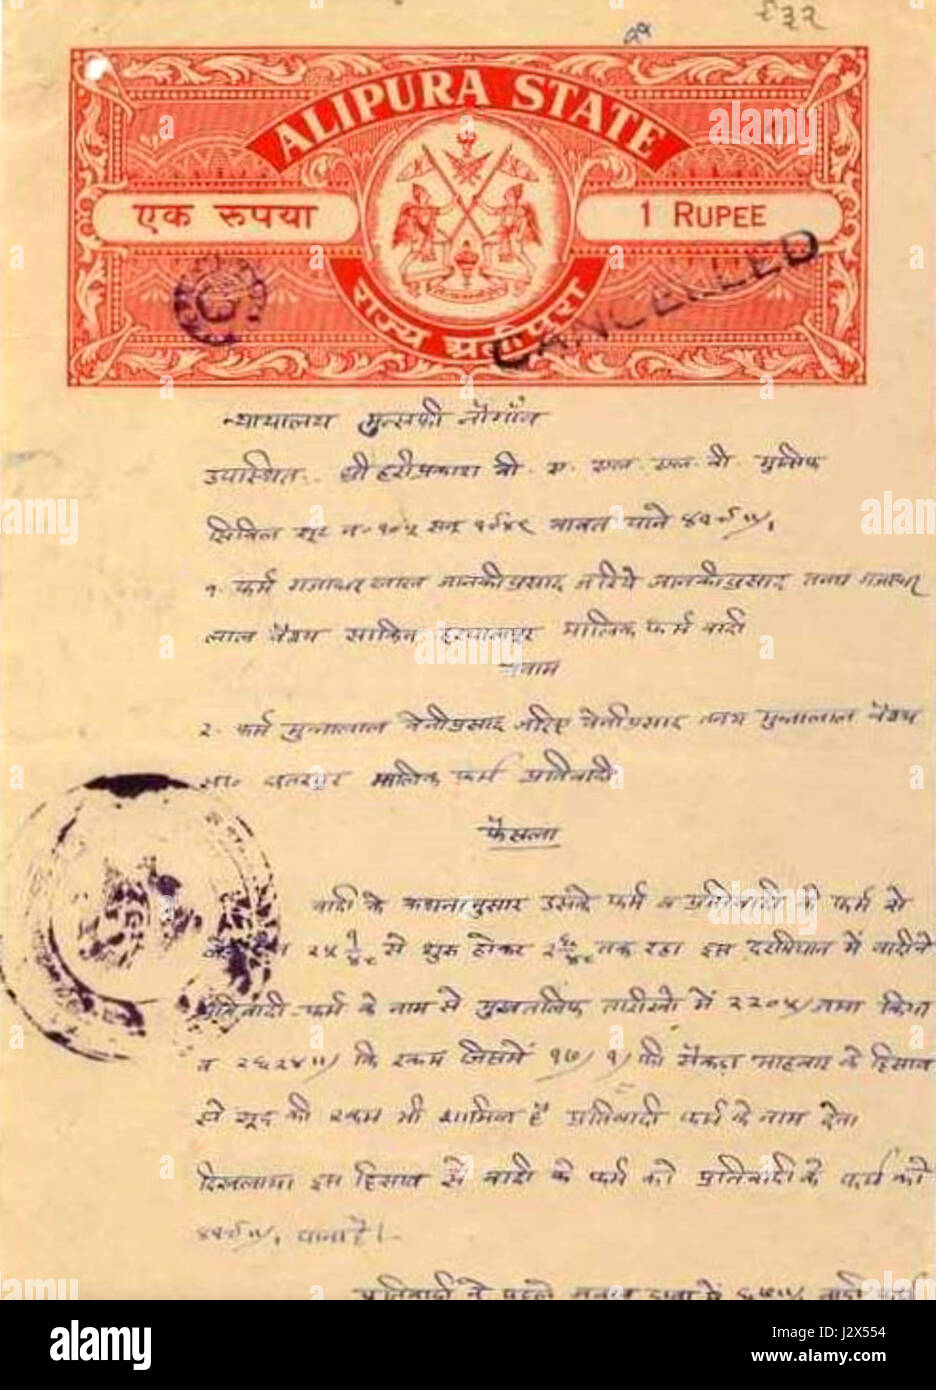 ६३२
ALIPURA STATE
एक रूपया
1 RUPEE
राज्य अलीपुरा
CANCELLED
न्यायालय मुन्सफी नौगाँव
उपस्थित:- श्री हरीप्रकाश बी. ए. एल. एल. बी. मुंसिफ
सिविल सूट न० १०५ सन् १९४९ बावत पाने ४१९॥/,
१. फर्म गजाधरलाल जानकीप्रसाद जरिये जानकीप्रसाद तनय गजाधर
लाल वैश्य साकिन हरपालपुर मालिक फर्म वादी
बनाम
२. फर्म मुन्नालाल बेनीप्रसाद जरिए बेनीप्रसाद तनय मुन्नालाल वैश्य
सा० छतरपुर मालिक फर्म प्रतिवादी
फैसला
वादी के कथनानुसार उसके फर्म व प्रतिवादी के फर्म से
से शुरू होकर तक रहा इस दरमियान में वादी ने
प्रतिवादी फर्म के नाम से मुखतलिफ तारीखों में २२०५/ जमा किया
व २६२४॥/ कि रकम जिसमें १७/ १/ की सैकड़ा माहवार के हिसाब
से सूद की रकम भी शामिल है प्रतिवादी फर्म के नाम देना
दिखलाया इस हिसाब से वादी के फर्म को प्रतिवादी के फर्म को
४१९॥/, पाना है।
प्रतिवादी ने पहले
alamy
alamy
Image ID: J2X554
www.alamy.com